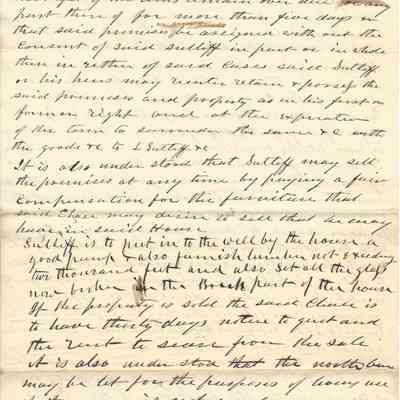 part thereof for more than five days or
that said premises be assigned with out the
Consent of Said Sutliff in part or in whole
then in either of said Cases said Sutliff
or his heirs may reenter retain & possess the
said premises and property as in his first or
former right and at the expiration
of the term to surrender the same &c with
the goods &c to L Sutliff &c
It is also under stood that Sutliff may sell
the premises at any time by paying a fair
Compensation for the furniture that
said Chase may desire to sell that he may
have in said House
Sutliff is to put in to the well by the house a
good pump & also furnish lumber not exceeding
two thousand feet and also Set all the glass
now broken in the Brick part of the house
If the property is sold the said Chase is
to have thirty days notice to quit and
the rent to cease from the sale
it is also under stod that the north barn
may be let for the purposes of